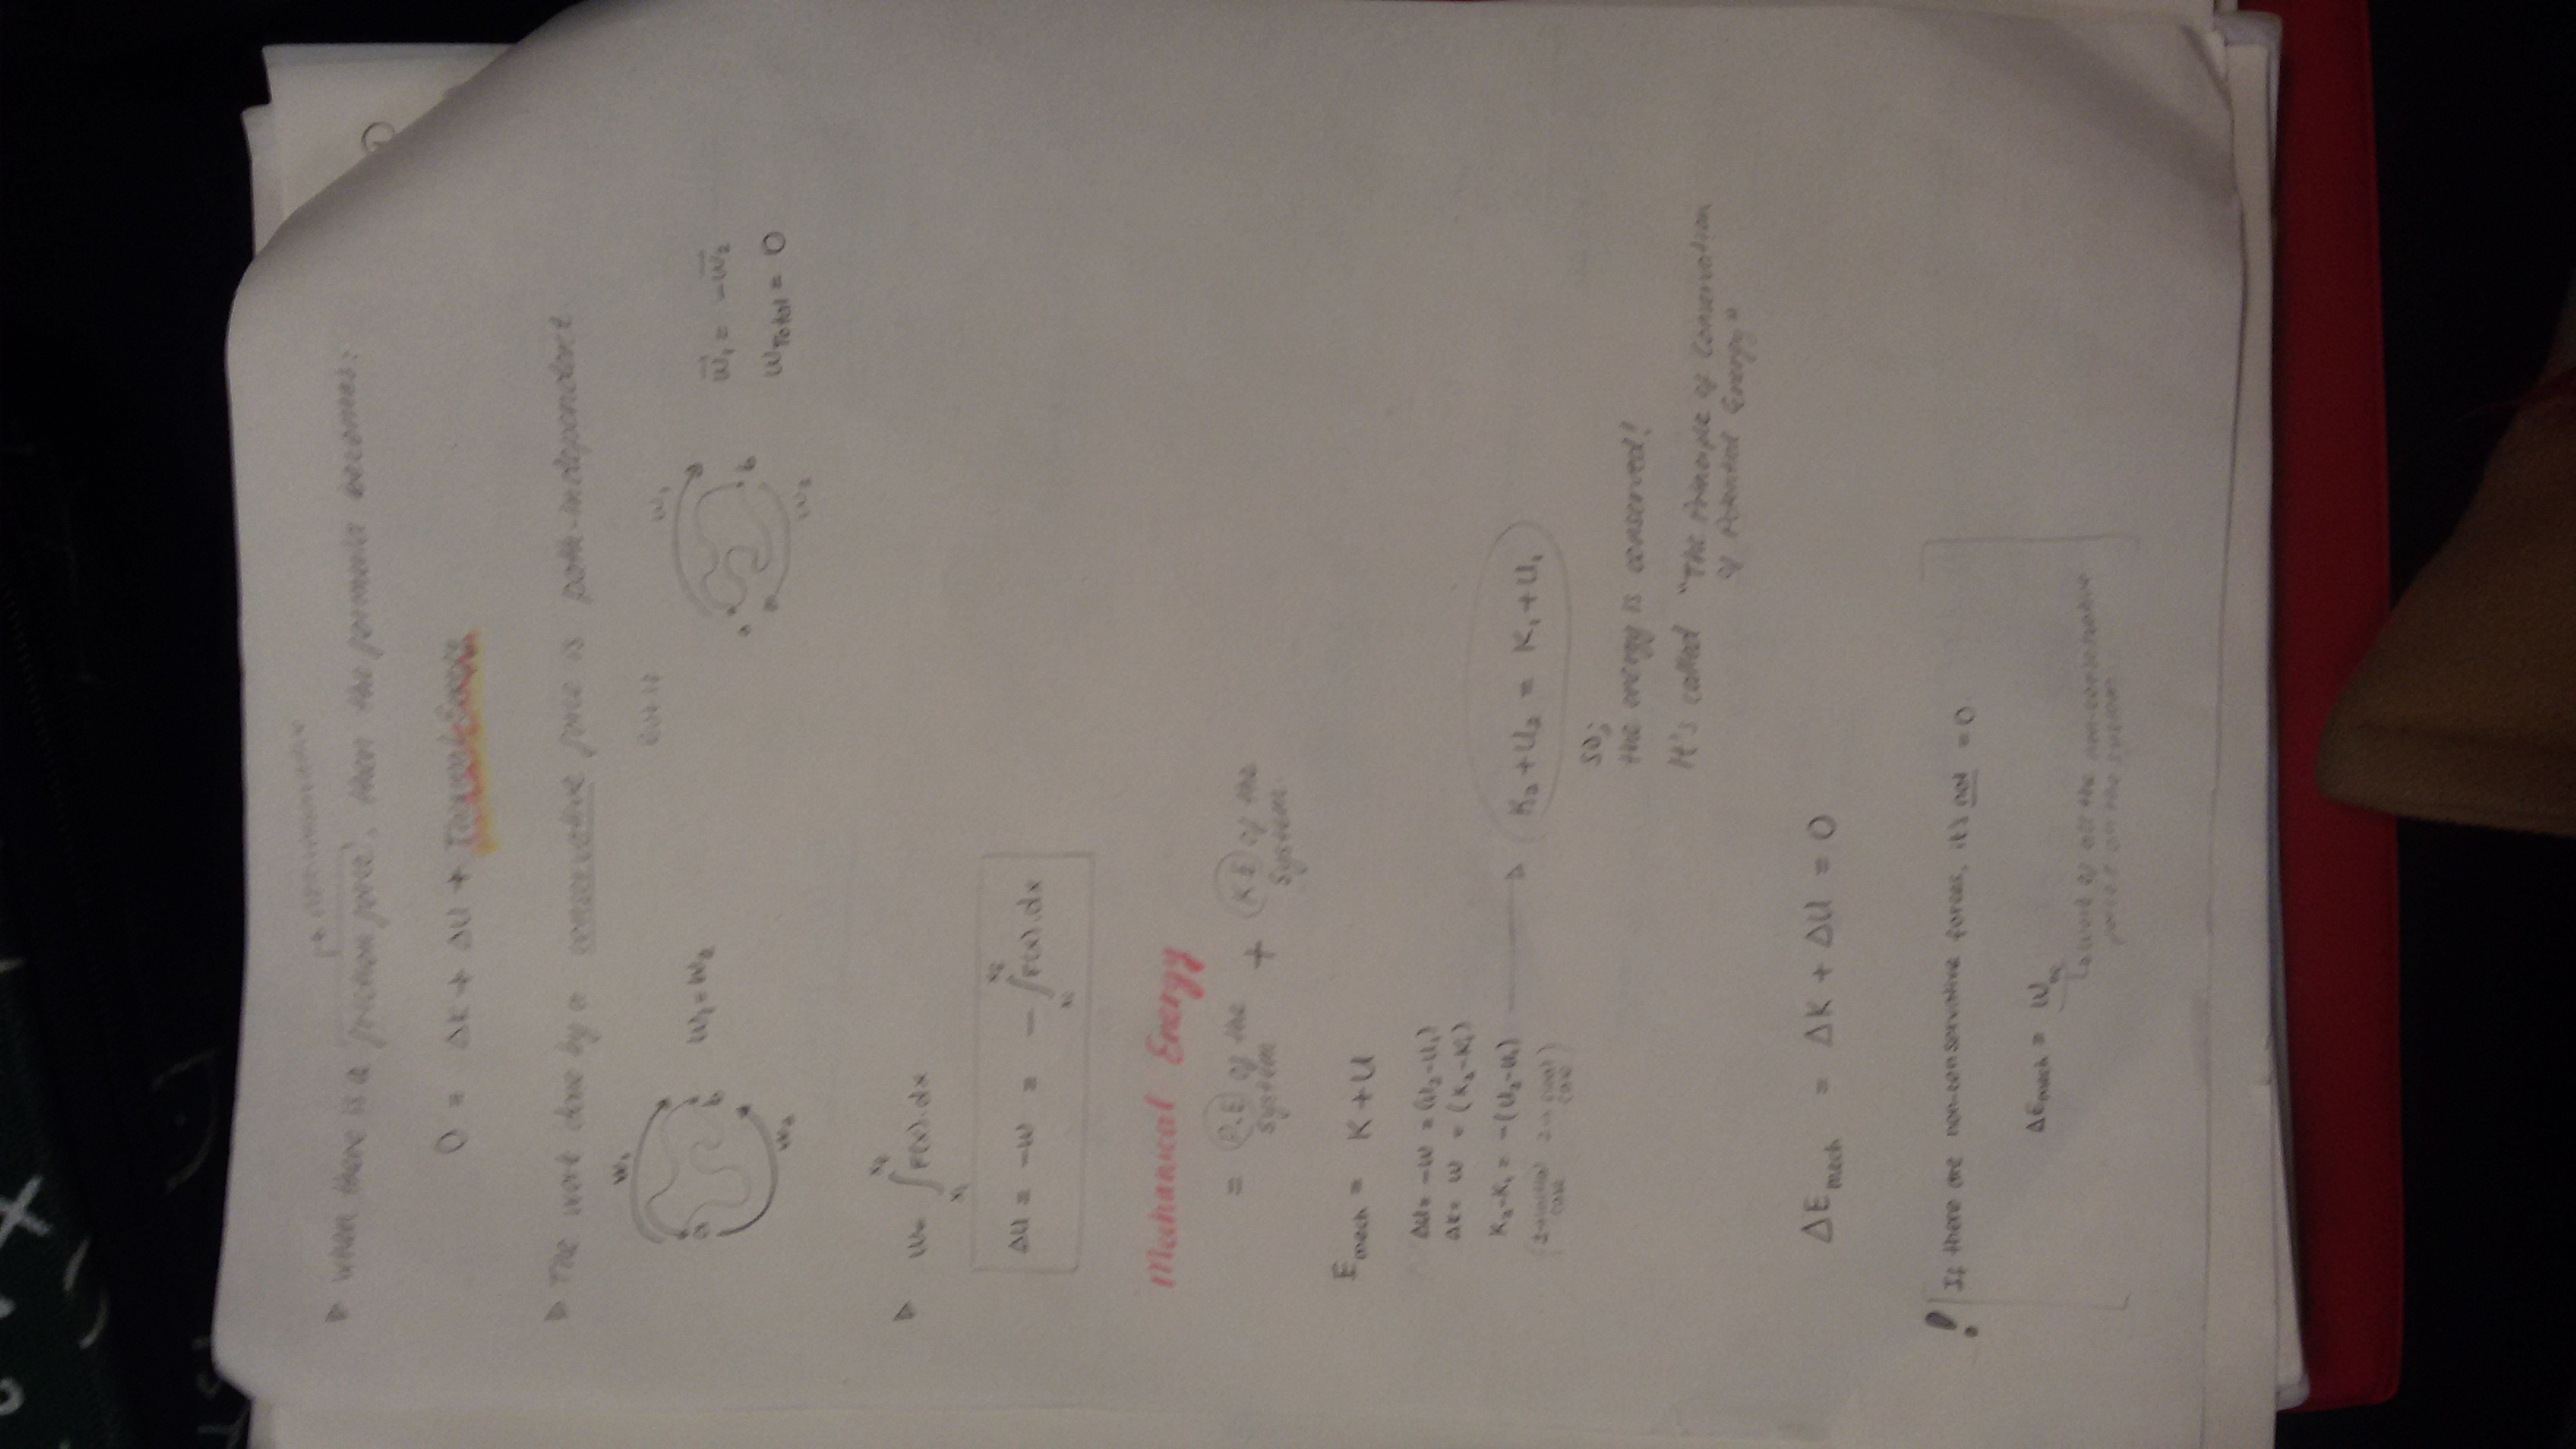 → nonconservative
▷ when there is a friction force, then the formula becomes:
0 = ΔK + ΔU + Thermal Energy
▷ The work done by a conservative force is path-independent
W₁
a
b
W₂
W₁ = W₂
But if
W₁
a
b
W₂
W₁ = -W₂
W Total = 0
▷ W = ∫ F(x).dx
x₂
x₁
ΔU = -W = - ∫ F(x).dx
x₂
x₁
Mechanical Energy
= P.E of the system + K.E of the system
E mech = K + U
ΔU = -W = (U₂-U₁)
ΔK = W = (K₂-K₁)
K₂-K₁ = -(U₂-U₁) → K₂+U₂ = K₁+U₁
so;
the energy is conserved!
It's called "The Principle of Conservation
of Potential Energy"
ΔE mech = ΔK + ΔU = 0
! If there are non-conservative forces, it's not = 0
ΔE mech = W nc
→ work of all the non-conservative
forces on the system